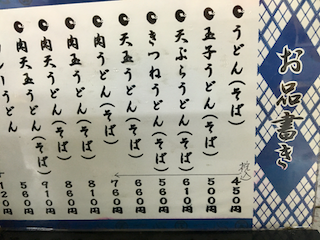 お品書き
税込
うどん(そば) 450円
玉子うどん(そば) 500円
天ぷらうどん(そば) 610円
きつねうどん(そば) 560円
天玉うどん(そば) 660円
肉うどん(そば) 760円
肉玉うどん(そば) 810円
肉天うどん(そば) 860円
肉天玉うどん(そば) 910円